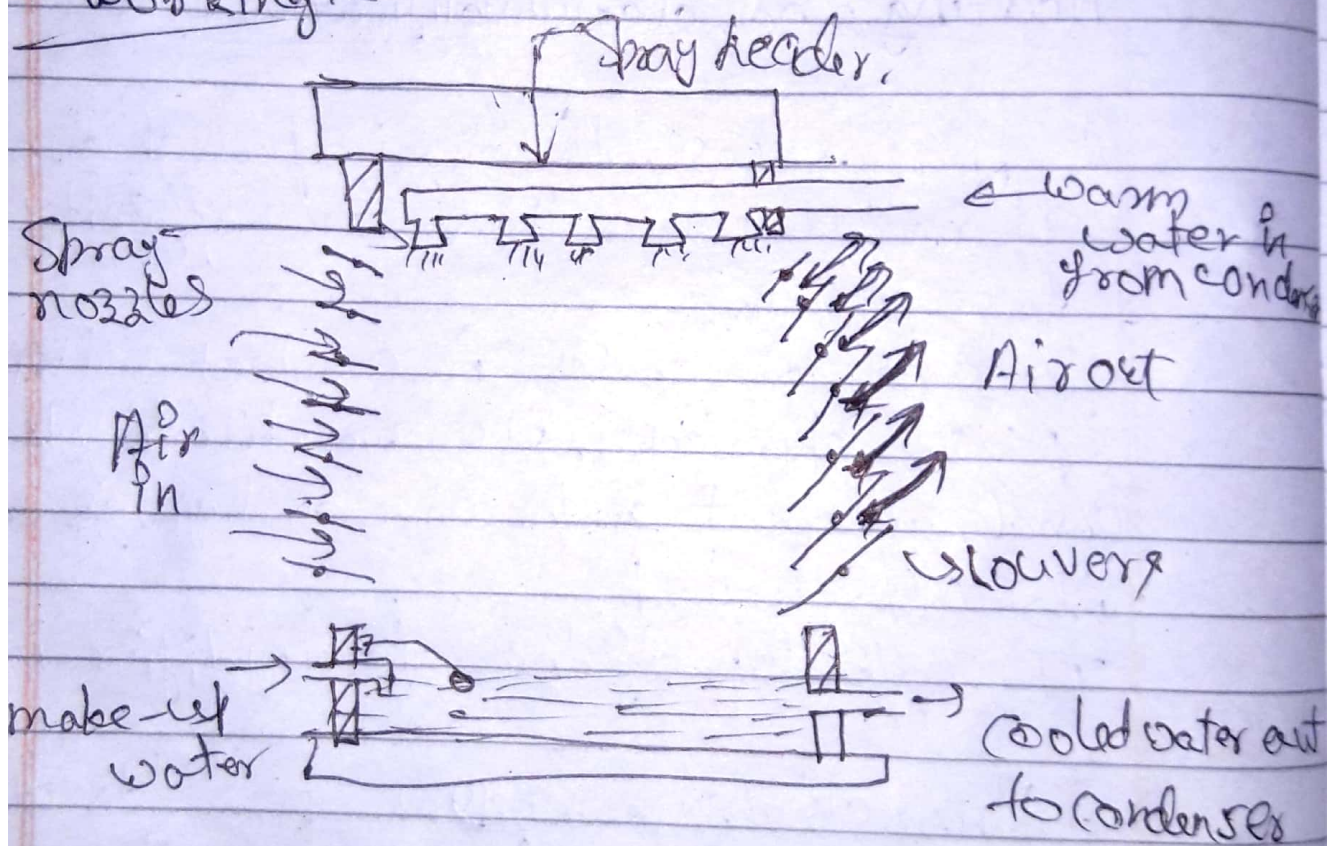 Working :-
Spray header.
Warm
water in
from condenser
Spray
nozzles
Air out
Air
in
Louvers
make-up
water
Cooled water out
to condenser